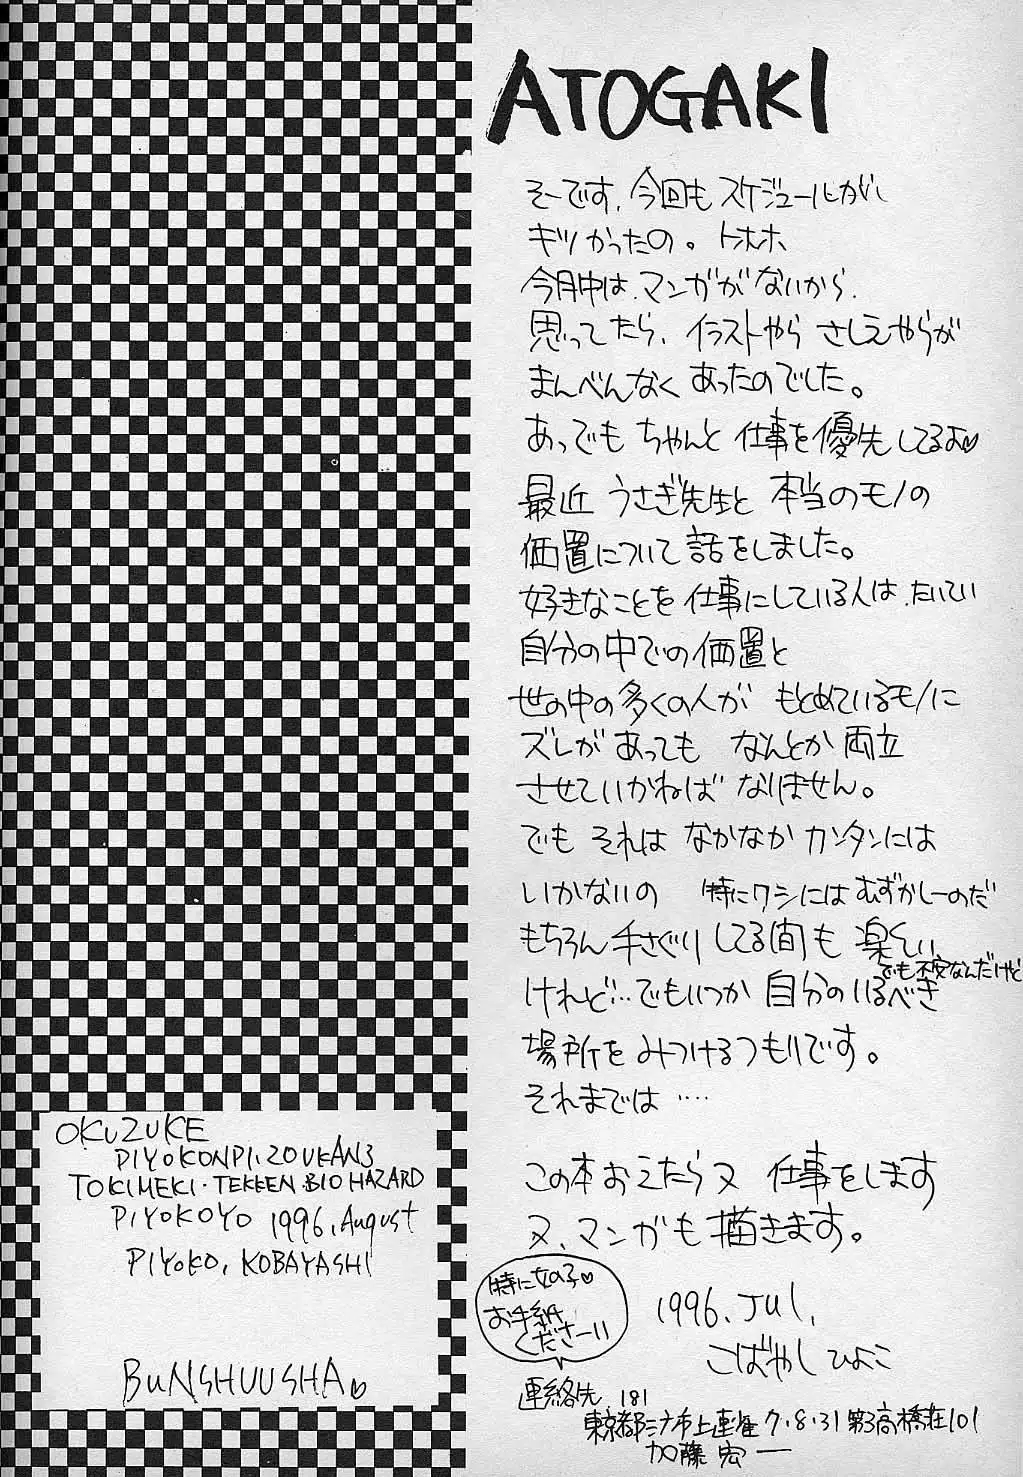 ATOGAKI
そーです、今回もスケジュールがし
キツかったの。トホホ
今月中は、マンガがないから、
思ってたら、イラストやら さしえやらが
まんべんなく あったのでした。
あっでも ちゃんと 仕事を優先してるよ♡
最近 うさぎ先生と 本当のモノの
価置について話をしました。
好きなことを仕事にしている人は、たいてい
自分の中での価置と
世の中の多くの人が もとめているモノに
ズレがあっても なんとか両立
させていかねば なりません。
でも それは なかなか カンタンには
いかないの 特にワシにはむずかしーのだ
もちろん 手さぐりしてる間も 楽しい
でも不安なんだけど
けれど…でもいつか 自分のいるべき
場所を みつけるつもりです。
それまでは‥‥
この本おえたら又 仕事をします
又、マンガも描きます。
特に女の子♡
お手紙
くださーい
1996. Jul.
こばやし ひよこ
連絡先 181
東京都ミタカ市上連雀 7・8・31 第3高橋荘101
加藤 宏一
OKUZUKE
PIYOKONPI.ZOUKAN3
TOKIMEKI・TEKKEN.BIOHAZARD
PIYOKOYO 1996, August
PIYOKO, KOBAYASHI
BUNSHUUSHA♡